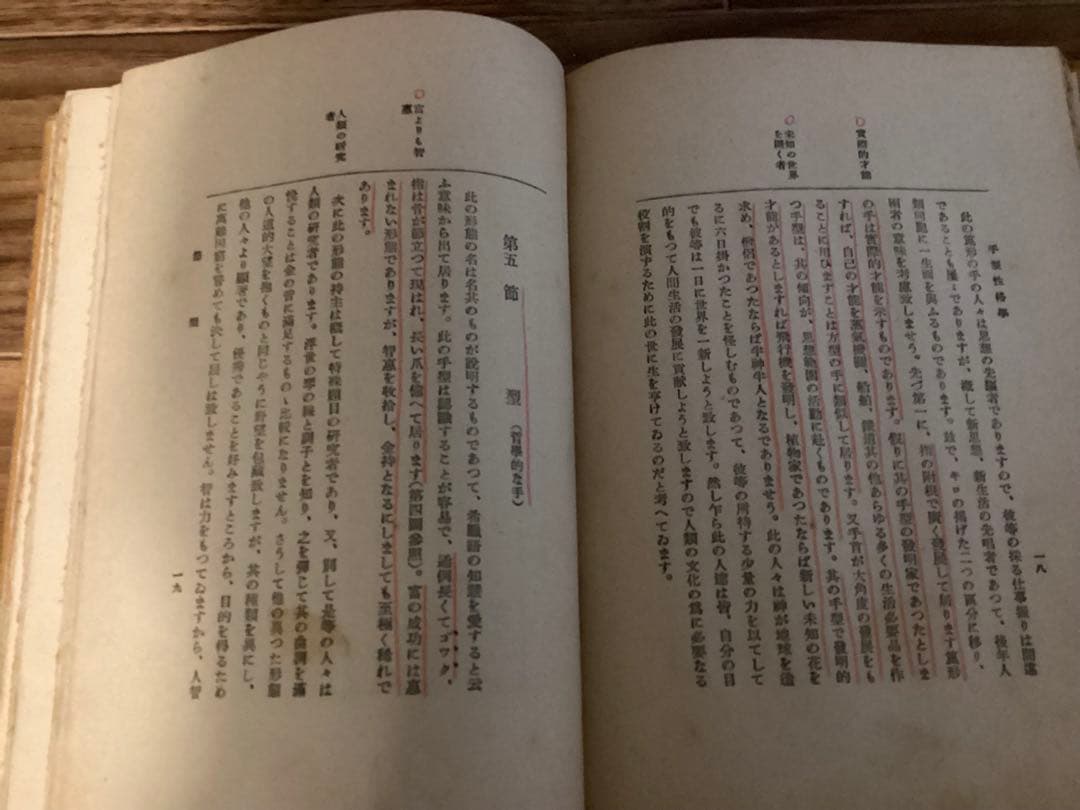 手型性格學
一八
實際的才能
未知の世界
を開く者
此の篦形の手の人々は思想の先驅者でありますので、彼等の採る仕事振りは間違
であることも屢々でありますが、概して新思想、新生活の先唱者であつて、後年人
類問題に一生面を與ふるものであります。故で、キロの掲げた二つの區分に移り、
兩者の意味を考慮致しませう。先づ第一に、指の附根で廣く發展して居ります篦形
の手は實際的才能を示すものであります。假りに其の手型の發明家であつたとしま
すれば、自己の才能を蒸氣機關、船舶、鐵道其の他あらゆる多くの生活必要品を作
ることに用ひますことは方型の手に類似して居ります。又手首が大角度の發展をも
つ手型は、其の傾向が、思想範圍の活動に赴くものであります。其の手型で發明的
才能があるとしますれば飛行機を發明し、植物家であつたならば新しい未知の花を
求め、僧侶であつたならば半神半人となるでありませう。此の人々は神が地球を造
るに六日掛かつたことを怪しむものであつて、彼等の所持する少量の力を以てして
でも彼等は一日に世界を一新しようと致します。然し乍ら此の人達は皆、自分の目
的をもつて人間生活の發展に貢献しようと致しますので人類の文化の爲に必要なる
役割を演ずるために此の世に生を享けてゐるのだと考へてゐます。
富よりも智
慧
人類の研究
者
第五節 型(哲學的な手)
此の形態の名は名其のものが說明するものであつて、希臘語の知慧を愛すると云
ふ意味から出て居ります。此の手型は認識することが容易で、通例長くてゴツゴツ、
指は骨が節立つて現はれ、長い爪を備へて居ります(第四圖參照)。富の成功には惠
まれない形態でありますが、智慧を收拾し、金持となるにしましても至極く稀れで
あります。
次に此の形態の持主は概して特殊題目の研究者であり、又、別して是等の人々は
人類の研究者であります。浮世の琴の絲と調子とを知り、之を彈じて其の曲調を滿
悅することは金の音に滿足するものゝ比較になりません。さうして他の異つた形態
の人達的大望を抱くものと同じやうに野望を包藏致しますが、其の種類を異にし、
他の人々より顯著であり、優秀であることを好みますところから、目的を得るため
に萬難困窮を嘗めても決して屈しは致しません。智は力をもつてゐますから、人智
一九